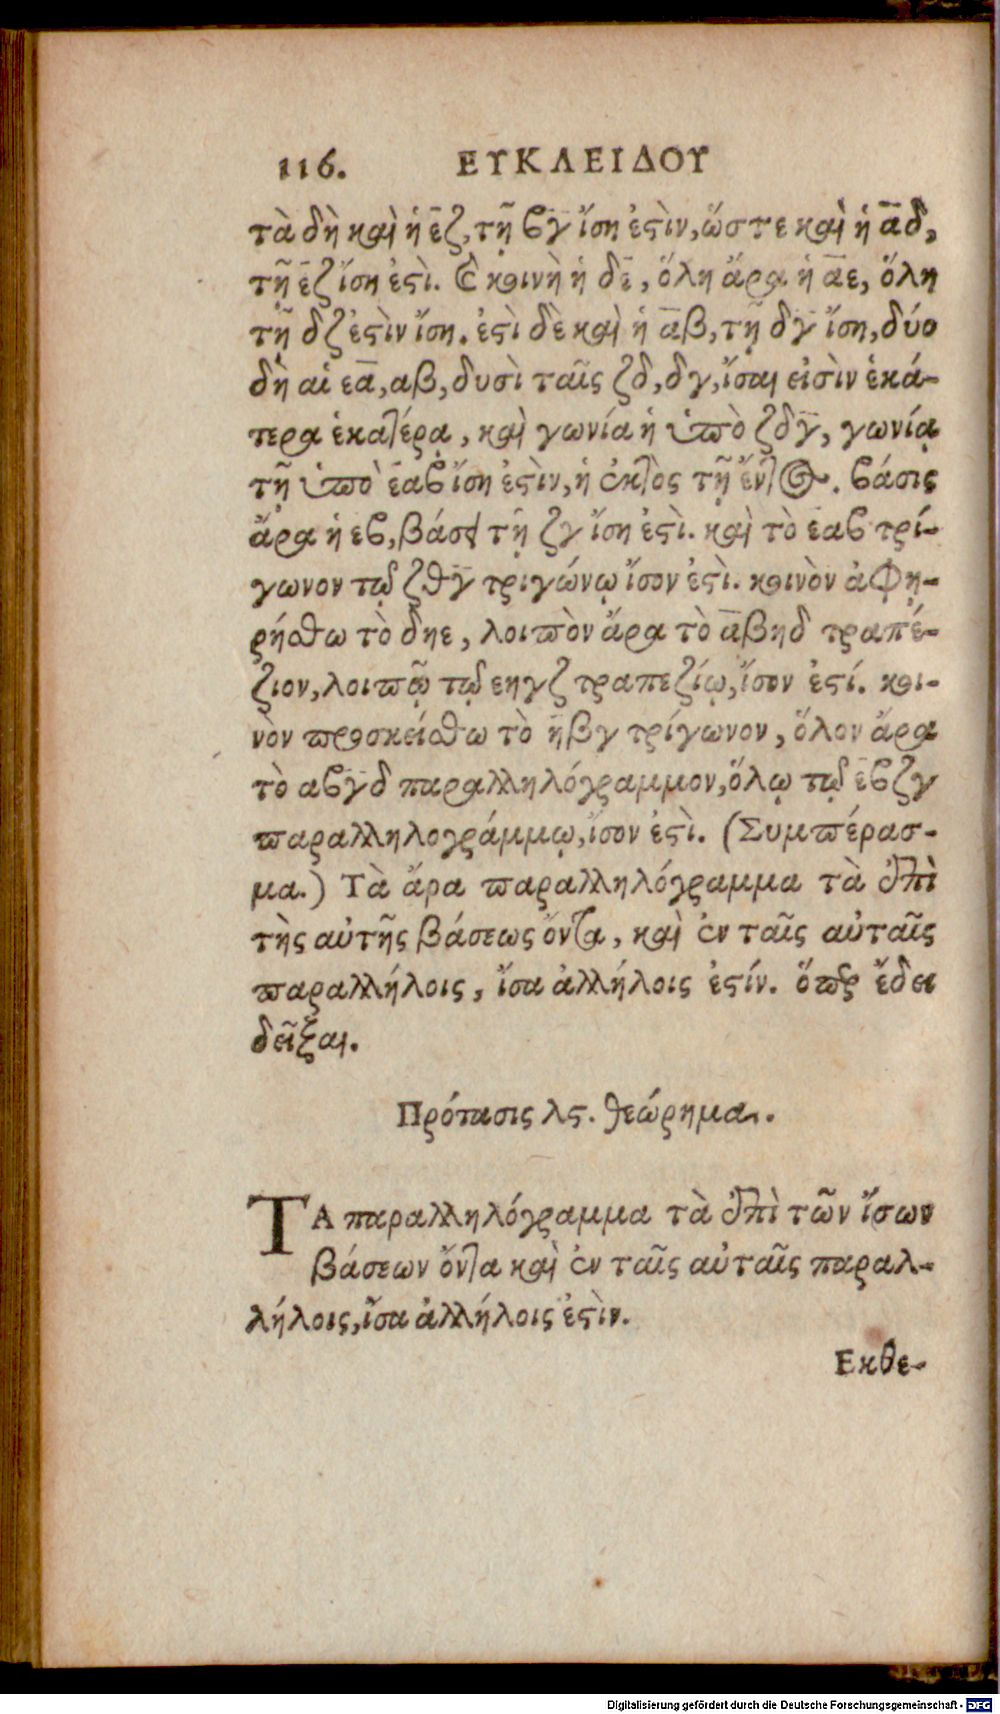 116. ΕΥΚΛΕΙΔΟΥ
τὰ δὴ καὶ ἡ ε̄ζ, τῇ ϐγ̄ ἴση ἐϛὶν, ὥστε καὶ ἡ ᾱδ,
τῇ ε̄ζ ἴση ἐϛὶ. Ϗ̀ κοινὴ ἡ δε̄, ὅλη ἄρα ἡ ᾱε, ὅλη
τῇ δζ ἐϛὶν ἴση. ἐϛὶ δὲ καὶ ἡ ᾱβ, τῇ δγ̄ ἴση, δύο
δὴ αἱ εᾱ, αβ, δυσὶ ταῖς ζδ, δγ, ἴσαι εἰσὶν ἑκά-
τερα ἑκατέρᾳ, καὶ γωνία ἡ ὑπὸ ζδγ̄, γωνίᾳ
τῇ ὑπὸ ε̄αϐ ἴση ἐϛὶν, ἡ ἐκτὸς τῇ ἔντος. ϐάσις
ἄρα ἡ εϐ, βάσει τῇ ζγ ἴση ἐϛὶ. καὶ τὸ ε̄αϐ τρί-
γωνον τῷ ζθγ̄ τριγώνῳ ἴσον ἐϛὶ. κοινὸν ἀφῃ-
ρήσθω τὸ δηε, λοιπὸν ἄρα τὸ ᾱβηδ τραπέ-
ζιον, λοιπῷ τῷ εηγζ τραπεζίῳ, ἴσον ἐϛί. κοι-
νὸν προσκείσθω τὸ η̄βγ τρίγωνον, ὅλον ἄρα
τὸ αϐγ̄δ παραλληλόγραμμον, ὅλῳ τῷ ε̄ϐζγ
παραλληλογράμμῳ, ἴσον ἐϛὶ. (Συμπέρασ-
μα.) Τὰ ἄρα παραλληλόγραμμα τὰ ἐπὶ
τῆς αὐτῆς βάσεως ὄντα, καὶ ἐν ταῖς αὐταῖς
παραλλήλοις, ἴσα ἀλλήλοις ἐϛίν. ὅπερ ἔδει
δεῖξαι.
Πρότασις λϛ. θεώρημα.
ΤΑ παραλληλόγραμμα τὰ ἐπὶ τῶν ἴσων
βάσεων ὄντα καὶ ἐν ταῖς αὐταῖς παραλ-
λήλοις, ἴσα ἀλλήλοις ἐϛὶν.
Εκθε-
Digitalisierung gefördert durch die Deutsche Forschungsgemeinschaft - DFG